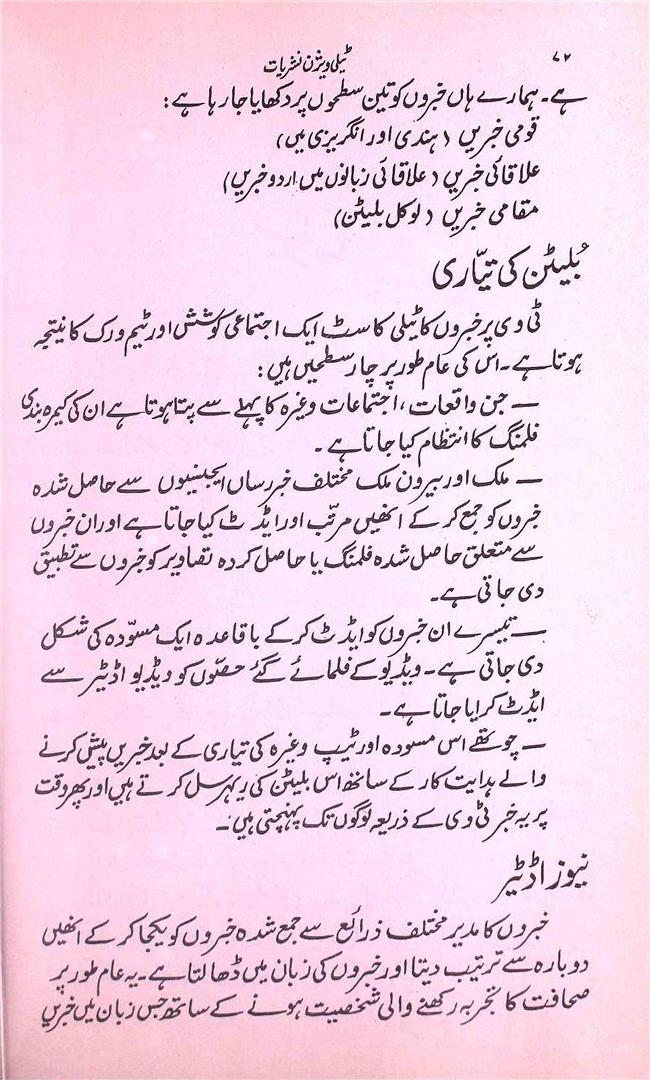 ۷۲
ٹیلی ویژن نشریات
ہے۔ ہمارے ہاں خبروں کو تین سطحوں پر دکھایا جا رہا ہے:
قومی خبریں (ہندی اور انگریزی میں)
علاقائی خبریں (علاقائی زبانوں میں اردو خبریں)
مقامی خبریں (لوکل بلیٹن)
بُلیٹن کی تیّاری
ٹی وی پر خبروں کا ٹیلی کاسٹ ایک اجتماعی کوشش اور ٹیم ورک کا نتیجہ
ہوتا ہے۔ اس کی عام طور پر چار سطحیں ہیں:
— جن واقعات، اجتماعات وغیرہ کا پہلے سے پتا ہوتا ہے ان کی کیمرہ بندی
فلمنگ کا انتظام کیا جاتا ہے۔
— ملک اور بیرون ملک مختلف خبر رساں ایجنسیوں سے حاصل شدہ
خبروں کو جمع کر کے انھیں مرتّب اور ایڈٹ کیا جاتا ہے اور ان خبروں
سے متعلق حاصل شدہ فلمنگ یا حاصل کردہ تصاویر کو خبروں سے تطبیق
دی جاتی ہے۔
— تیسرے ان خبروں کو ایڈٹ کر کے باقاعدہ ایک مسوّدہ کی شکل
دی جاتی ہے۔ ویڈیو کے فلمائے گئے حصّوں کو ویڈیو اڈیٹر سے
ایڈٹ کرایا جاتا ہے۔
— چوتھے اس مسودہ اور ٹیپ وغیرہ کی تیاری کے بعد خبریں پیش کرنے
والے ہدایت کار کے ساتھ اس بلیٹن کی ریہرسل کرتے ہیں اور پھر وقت
پر یہ خبر ٹی وی کے ذریعہ لوگوں تک پہنچتی ہیں۔
نیوز اڈیٹر
خبروں کا مدیر مختلف ذرائع سے جمع شدہ خبروں کو یکجا کر کے انھیں
دوبارہ سے ترتیب دیتا اور خبروں کی زبان میں ڈھالتا ہے۔ یہ عام طور پر
صحافت کا تجربہ رکھنے والی شخصیت ہونے کے ساتھ جس زبان میں خبریں